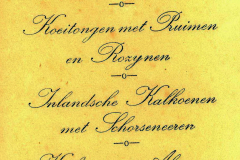 Koeitongen met Pruimen
en Rozynen
Inlandsche Kalkoenen
met Schorseneeren